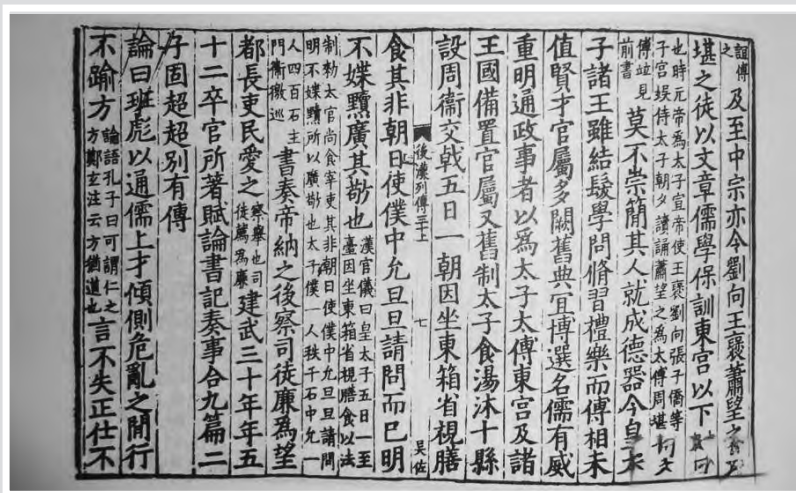 誼傅
之
及至中宗亦令劉向王襃蕭望之
堪之徒以文章儒學保訓東宮以下
也時元帝爲太子宣帝使王襃劉向張子僑等
子宮娛侍太子朝夕讀誦蕭望之爲太傅周堪
傅並見
前書
莫不崇簡其人就成德器今皇太
子諸王雖結髮學問脩習禮樂而傅相未
值賢才官屬多闕舊典宜博選名儒有威
重明通政事者以爲太子太傅東宮及諸
王國備置官屬又舊制太子食湯沐十縣
設周衞交戟五日一朝因坐東箱省視膳
後漢列傳三十上 七 吴佐
食其非朝日使僕中允旦旦請問而已明
不媟黷廣其敬也
漢官儀曰皇太子五日一至
臺因坐東箱省視膳食以法
制勑太官尚食宰吏其非朝日使僕中允旦旦請問
明不媟黷所以廣敬也太子僕一人秩千石中允一
人四百石主
門衞徼巡
書奏帝納之後察司徒廉爲望
都長吏民愛之
察舉也司
徒薦爲廉
建武三十年年五
十二卒官所著賦論書記奏事合九篇二
子固超超別有傳
論曰班彪以通儒上才傾側危亂之閒行
不踰方
論語孔子曰可謂仁之
方鄭玄注云方猶道也
言不失正仕不